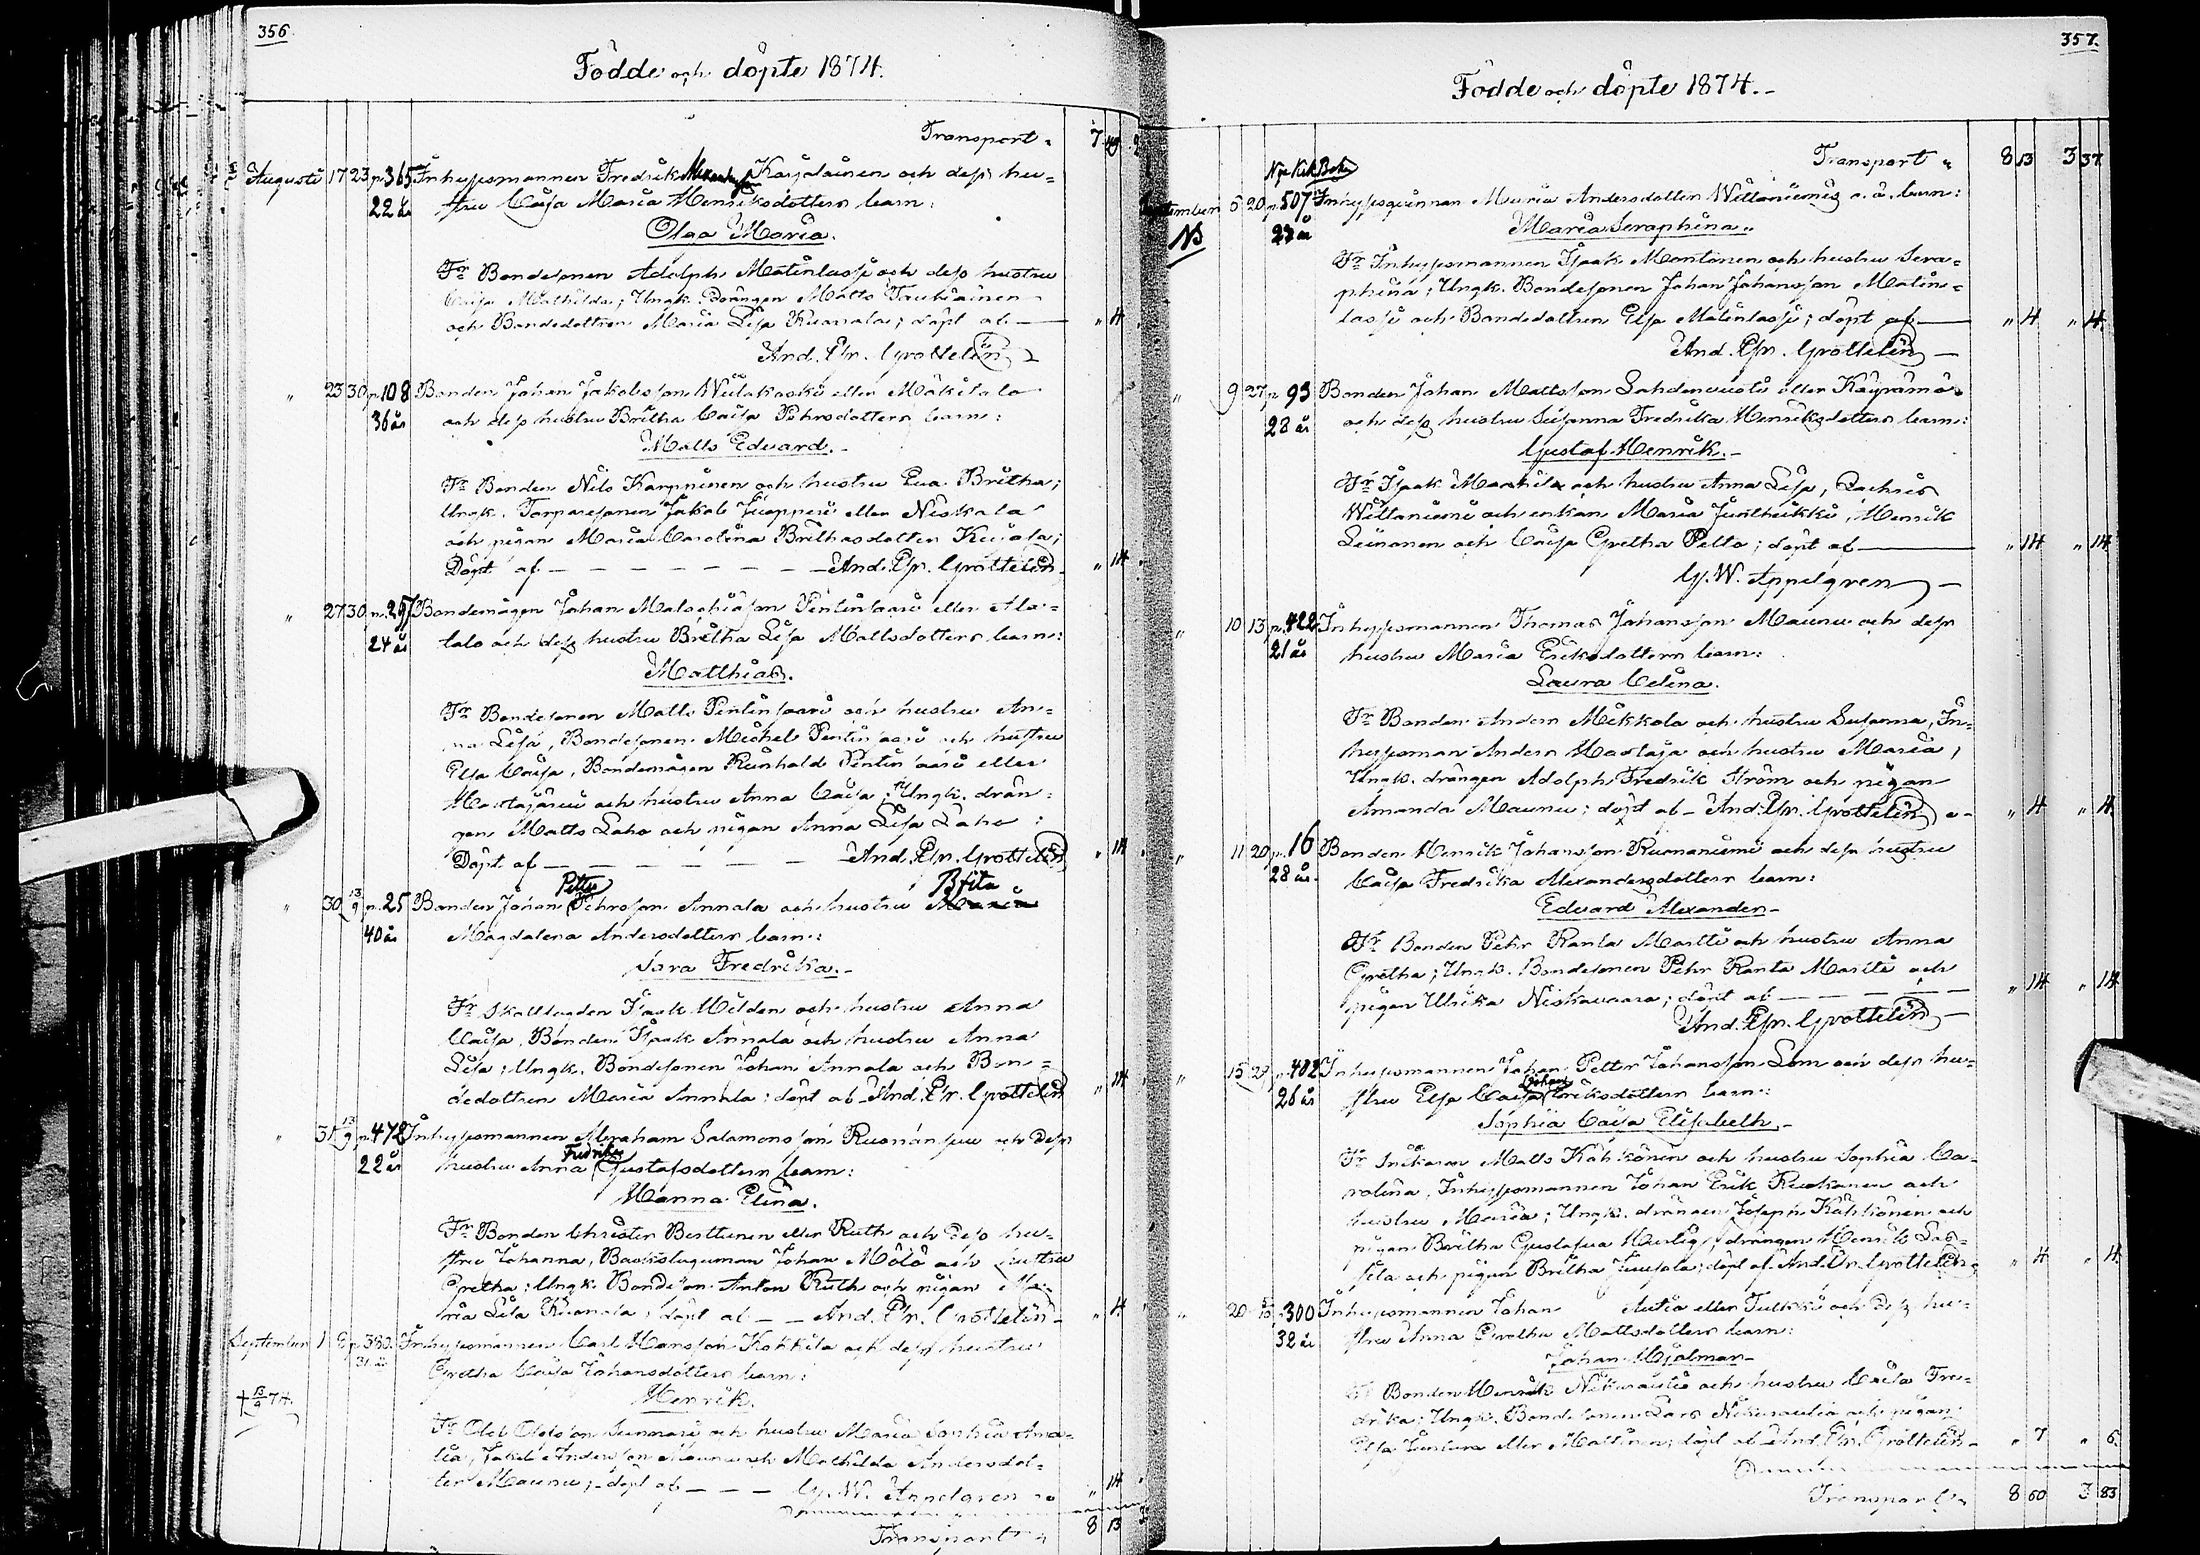 356.
Födde och döpte 1874.
Transport 7
Augusti 17 23 p. 365 Inhysesmannen Fredrik Karjalainen och dess hu-
22 år stru Caisa Maria Henriksdotters barn:
Olga Maria.
Fr Bondesonen Adolph Matinlassi och dess hustru
Caisa Mathilda; Ungk. Drängen Matts Taukiainen
och Bondedottren Maria Lisa Kuarala; döpt af — " 4
And. Gr. Grottelin
" 23 30 p. 108 Bonden Johan Jakobsson Wiitakoski eller Mäkitalo
36 år och dess hustru Britha Caisa Pehrsdotters barn:
Matts Edvard. -
Fr Bonden Nils Karppinen och hustru Eva Britha;
Ungk. Torparesonen Jakob Juoperi eller Niskala
och pigan Maria Carolina Brithasdotter Kujala;
Döpt af — — — — And. Gr. Grottelin " 14
" 27 30 p. 297 Bondemågen Johan Malachiasson Pentinsaari eller Ala-
24 år talo och dess hustru Britha Lisa Mattsdotters barn:
Matthias.
Fr Bondesonen Matts Pentinsaari och hustru An-
na Lisa, Bondesonen Michel Pentinsaari och hustru
Elsa Caisa, Bondemågen Reinhold Pentinsaari eller
Martajärvi och hustru Anna Caisa; Ungk. drän-
gen Matts Laho och pigan Anna Lisa Laho:
Döpt af — — — — And. Gr. Grottelin " 14
Petter Brita
" 30 13/9 p. 25 Bonden Johan Pehrsson Annala och hustru Maria
40 år Magdalena Andersdotters barn:
Sara Fredrika. -
Fr Skattlagden Isaak Hilden och hustru Anna
Caisa, Bonden Isaak Annala och hustru Anna
Lisa; Ungk. Bondesonen Johan Annala och Bon-
dedottren Maria Annala: döpt af And. Gr. Grottelin " 14
" 31 13/9 p. 472 Inhysesmannen Abraham Salomonsson och dess
Fredrika
22 år hustru Anna Gustafsdotters barn:
Hanna Elina.
Fr Bonden Christer Bertunen eller Ruth och dess hu-
stru Johanna, Johan Mölö och hustru
Gretha; Ungk. Bondeson Anton Ruth och pigan Ma-
ria Lisa Kuarala; döpt af — And. Gr. Grottelin " 4
September 1 6 p. 380. Inhysesmannen Carl Hansson Kokkila och dess hustru
31 år Gretha Caisa Johansdotters barn:
Henrik.
† 13/9 74.
Fr Olof Olofsson och hustru Maria Sophia Ama-
lia, Jakob Andersson Maunu och Mathilda Andersdot-
ter Maunu; döpt af — — — G. W. Appelgren " 14
Transport 8 13
357.
Födde och döpte 1874. -
Transport 8 13 3 37
Nya Kk Boken
September 5 20 p. 507 Inhysesqvinnan Maria Andersdotter Willaniemis o. ä. barn:
NB 27 år Maria Seraphina.
Fr Inhysesmannen Isaak Montinen och hustru Sera-
phina; Ungk. Bondesonen Johan Johansson Matin-
lassi och Bondedottren Elsa Matinlassi; döpt af — " 4 " 4
And. Gr. Grottelin —
" 9 27 p. 93 Bonden Johan Mattsson Lahdenvuoti eller Käyrämö
28 år och dess hustru Susanna Fredrika Henriksdotters barn:
Gustaf Henrik. -
Fr Isaak Markila och hustru Anna Lisa, Zachris
Willaniemi och enkan Maria Juntheikki, Henrik
Leinonen och Caisa Gretha Pelto; döpt af — " 14 " 14
G. W. Appelgren —
" 10 13 p. 422 Inhysesmannen Thomas Johansson Maunu och dess
21 år hustru Maria Eriksdotters barn:
Laura Celina.
Fr Bonden Anders Mikkola och hustru Susanna, In-
hysesman Anders Hastaja och hustru Maria;
Ungk. drängen Adolph Fredrik Ström och pigan
Amanda Maunu; döpt af — And. Gr. Grottelin " 4 " 4
" 11 20 p. 16 Bonden Henrik Johansson Ruonaniemi och dess hustru
28 år. Caisa Fredrika Alexandersdotters barn:
Edvard Alexander -
Fr Bonden Pehr Ranta Martti och hustru Anna
Gretha; Ungk. Bondesonen Pehr Ranta Martti och
pigan Ulrika Niskavaara; döpt af — — — " 14 " 14
And. Gr. Grottelin —
" 15 27 p. 402 Inhysesmannen Johan Petter Johansson Lom och dess hu-
Johan
26 år stru Elsa Caisa Eriksdotters barn:
Sophia Caisa Elisabeth. -
Fr Snikaren Matts Kähkönen och hustru Sophia Ca-
rolina, Inhysesmannen Johan Erik Ruokanen och
hustru Maria; Ungk. drängen Joseph Kähkönen och
pigan Britha Gustafva Herlig, drängen Henrik Las-
sila och pigan Britha Juujala; döpt af And. Gr. Grottelin " 4 " 4
" 20 p. 300 Inhysesmannen Johan Autio eller Tulkki och dess hu-
32 år stru Anna Gretha Mattsdotters barn:
Johan Hjalmar -
Fr Bonden Henrik Näkinautio och hustru Caisa Fre-
drika; Ungk. Bondesonen Lars Näkinautio och pigan
Elsa eller Mattinen; döpt af And. Gr. Grottelin " 7 " 6
Transport 8 60 3 83